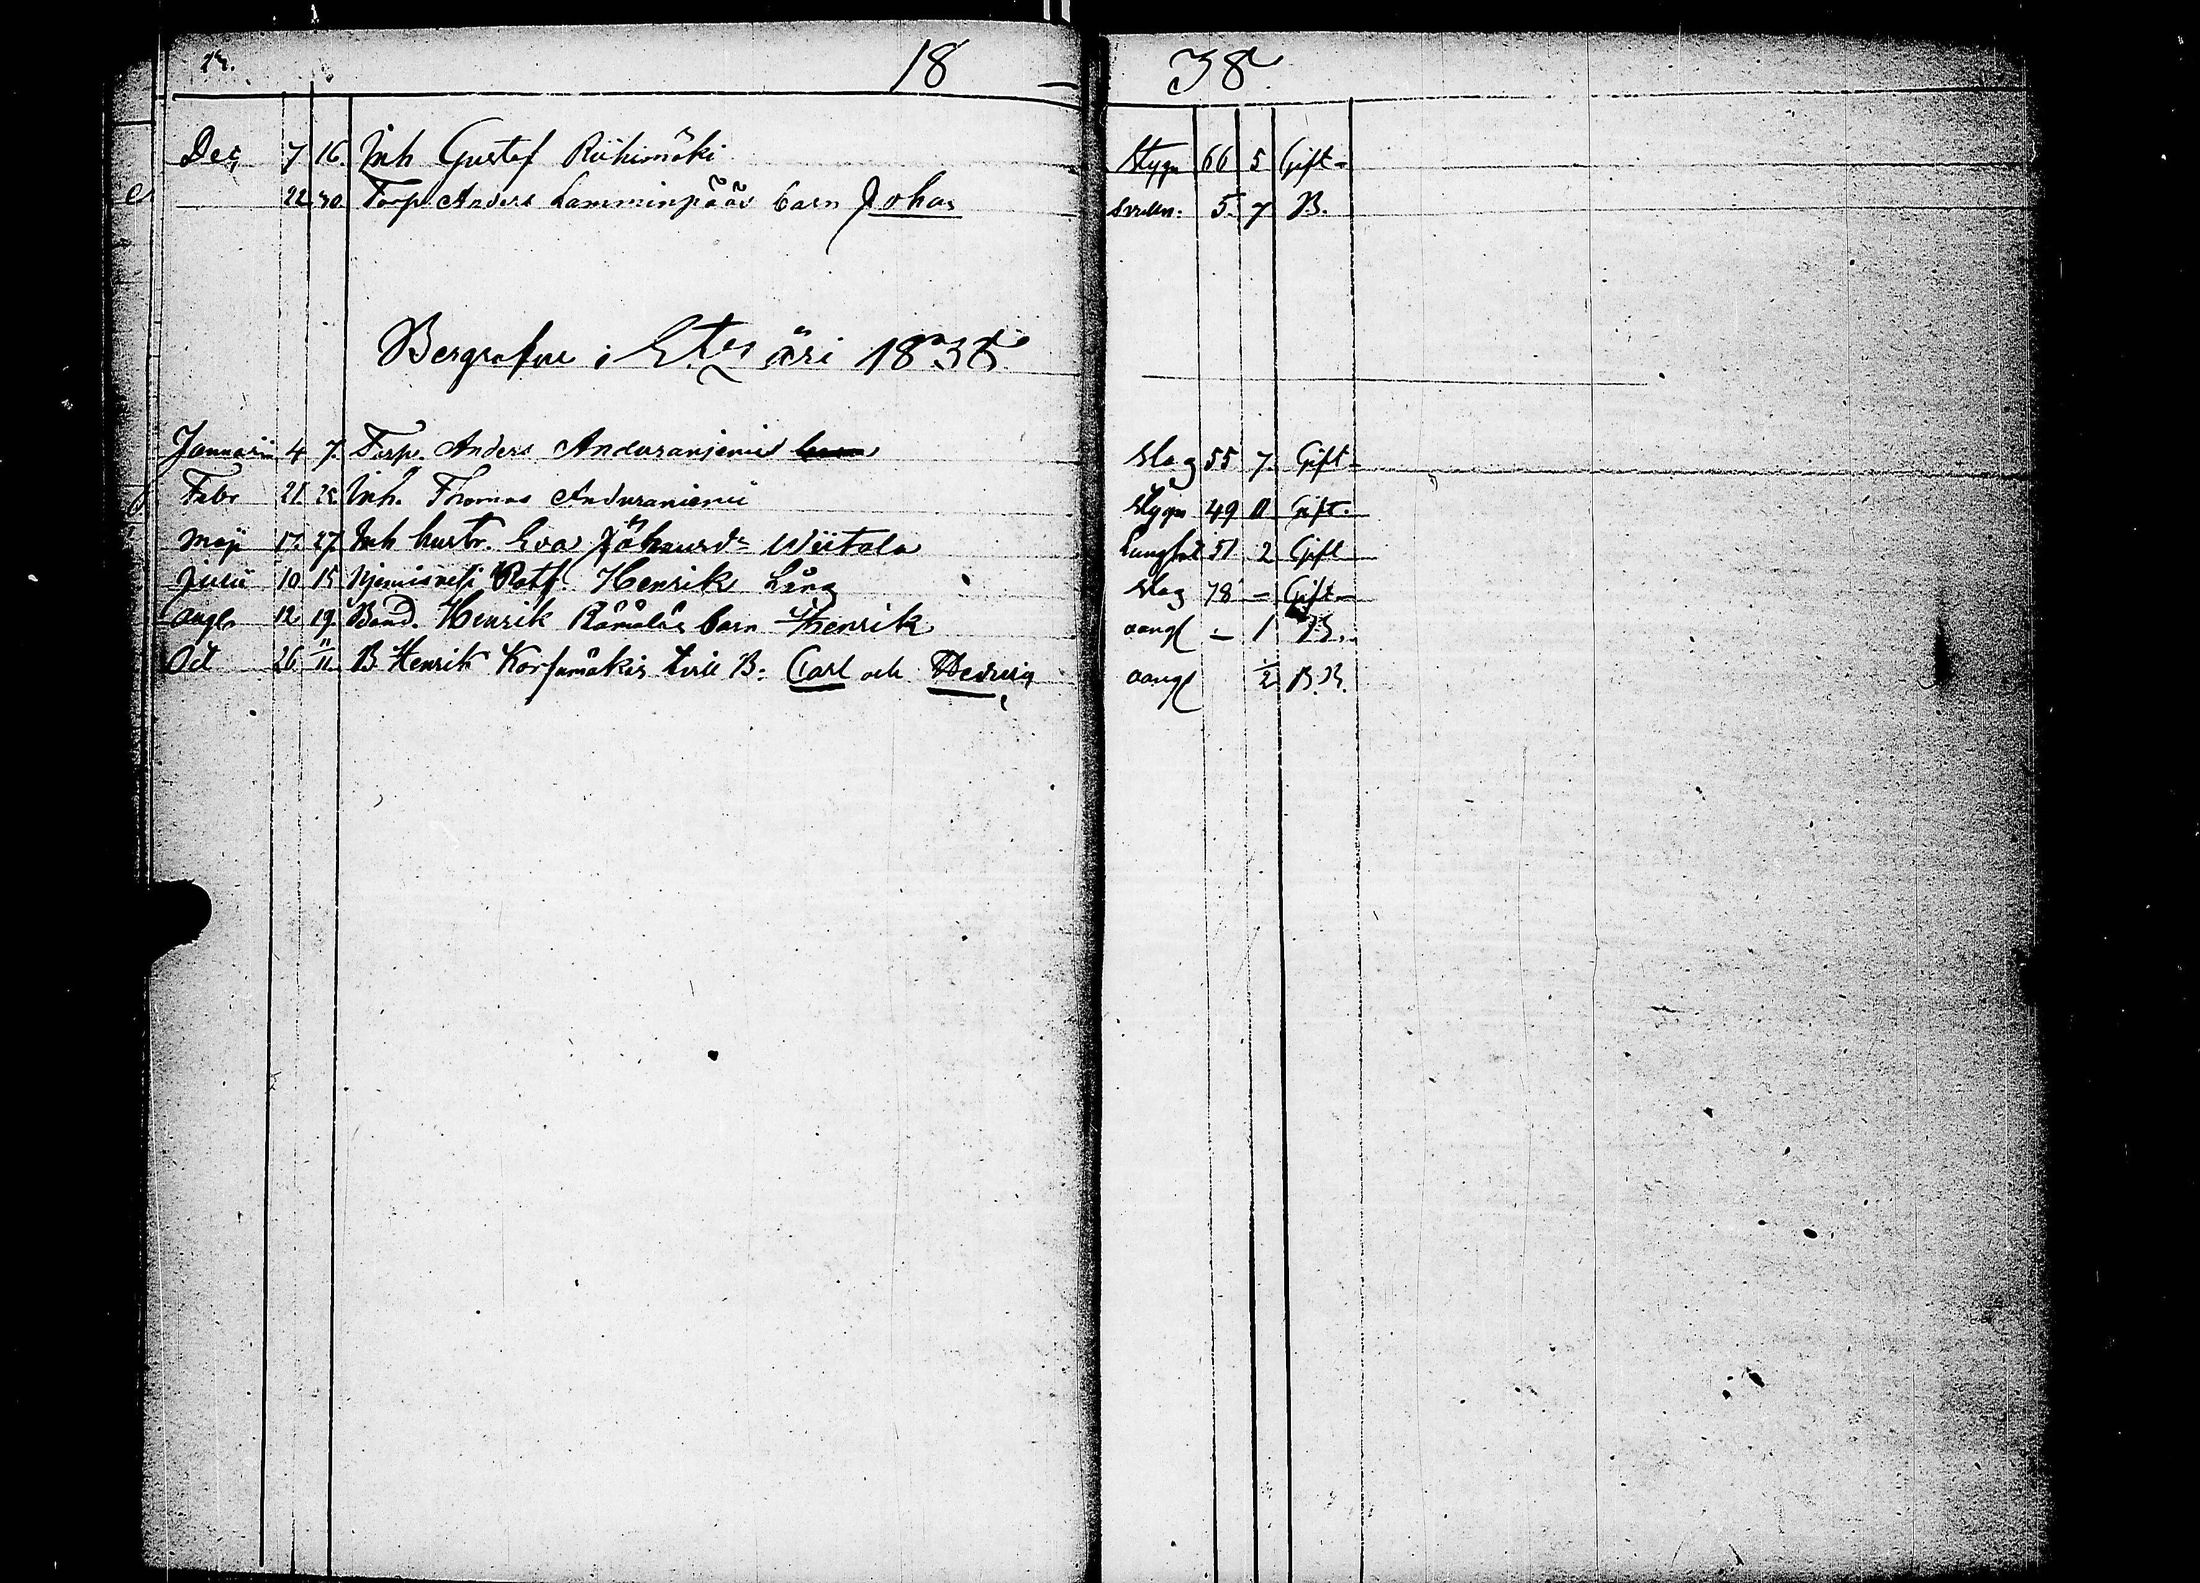 18 38.
Dec 7 16. Inh Gustaf Riihimäki Stygn 66 5 Gift-
22 30 Torp. Anders Lamminpääs barn Johan 5. 7 B.
Bergrafne i Etseri 1838
Januarii 4 7. Torp. Anders Anduranjemi slag 55 7. Gift-
Febr 21 25 Inh. Thomas Anduraniemi Stygn 49 11 Gift.
Maji 17. 27. Inh hustr. Eva Johansd. Wiitala Lungsot 51 2 Gift
Julii 10 15 Rotf. Henrik Lång slag 78 - Gift-
Aug 12 19. Bond. Henrik Rämäläs barn Henrik oangf - 1 B.
Oct 26 11/11. B Henrik Korsumäkis tvill B: Carl och Hedvig oangf 1/2 B.B.